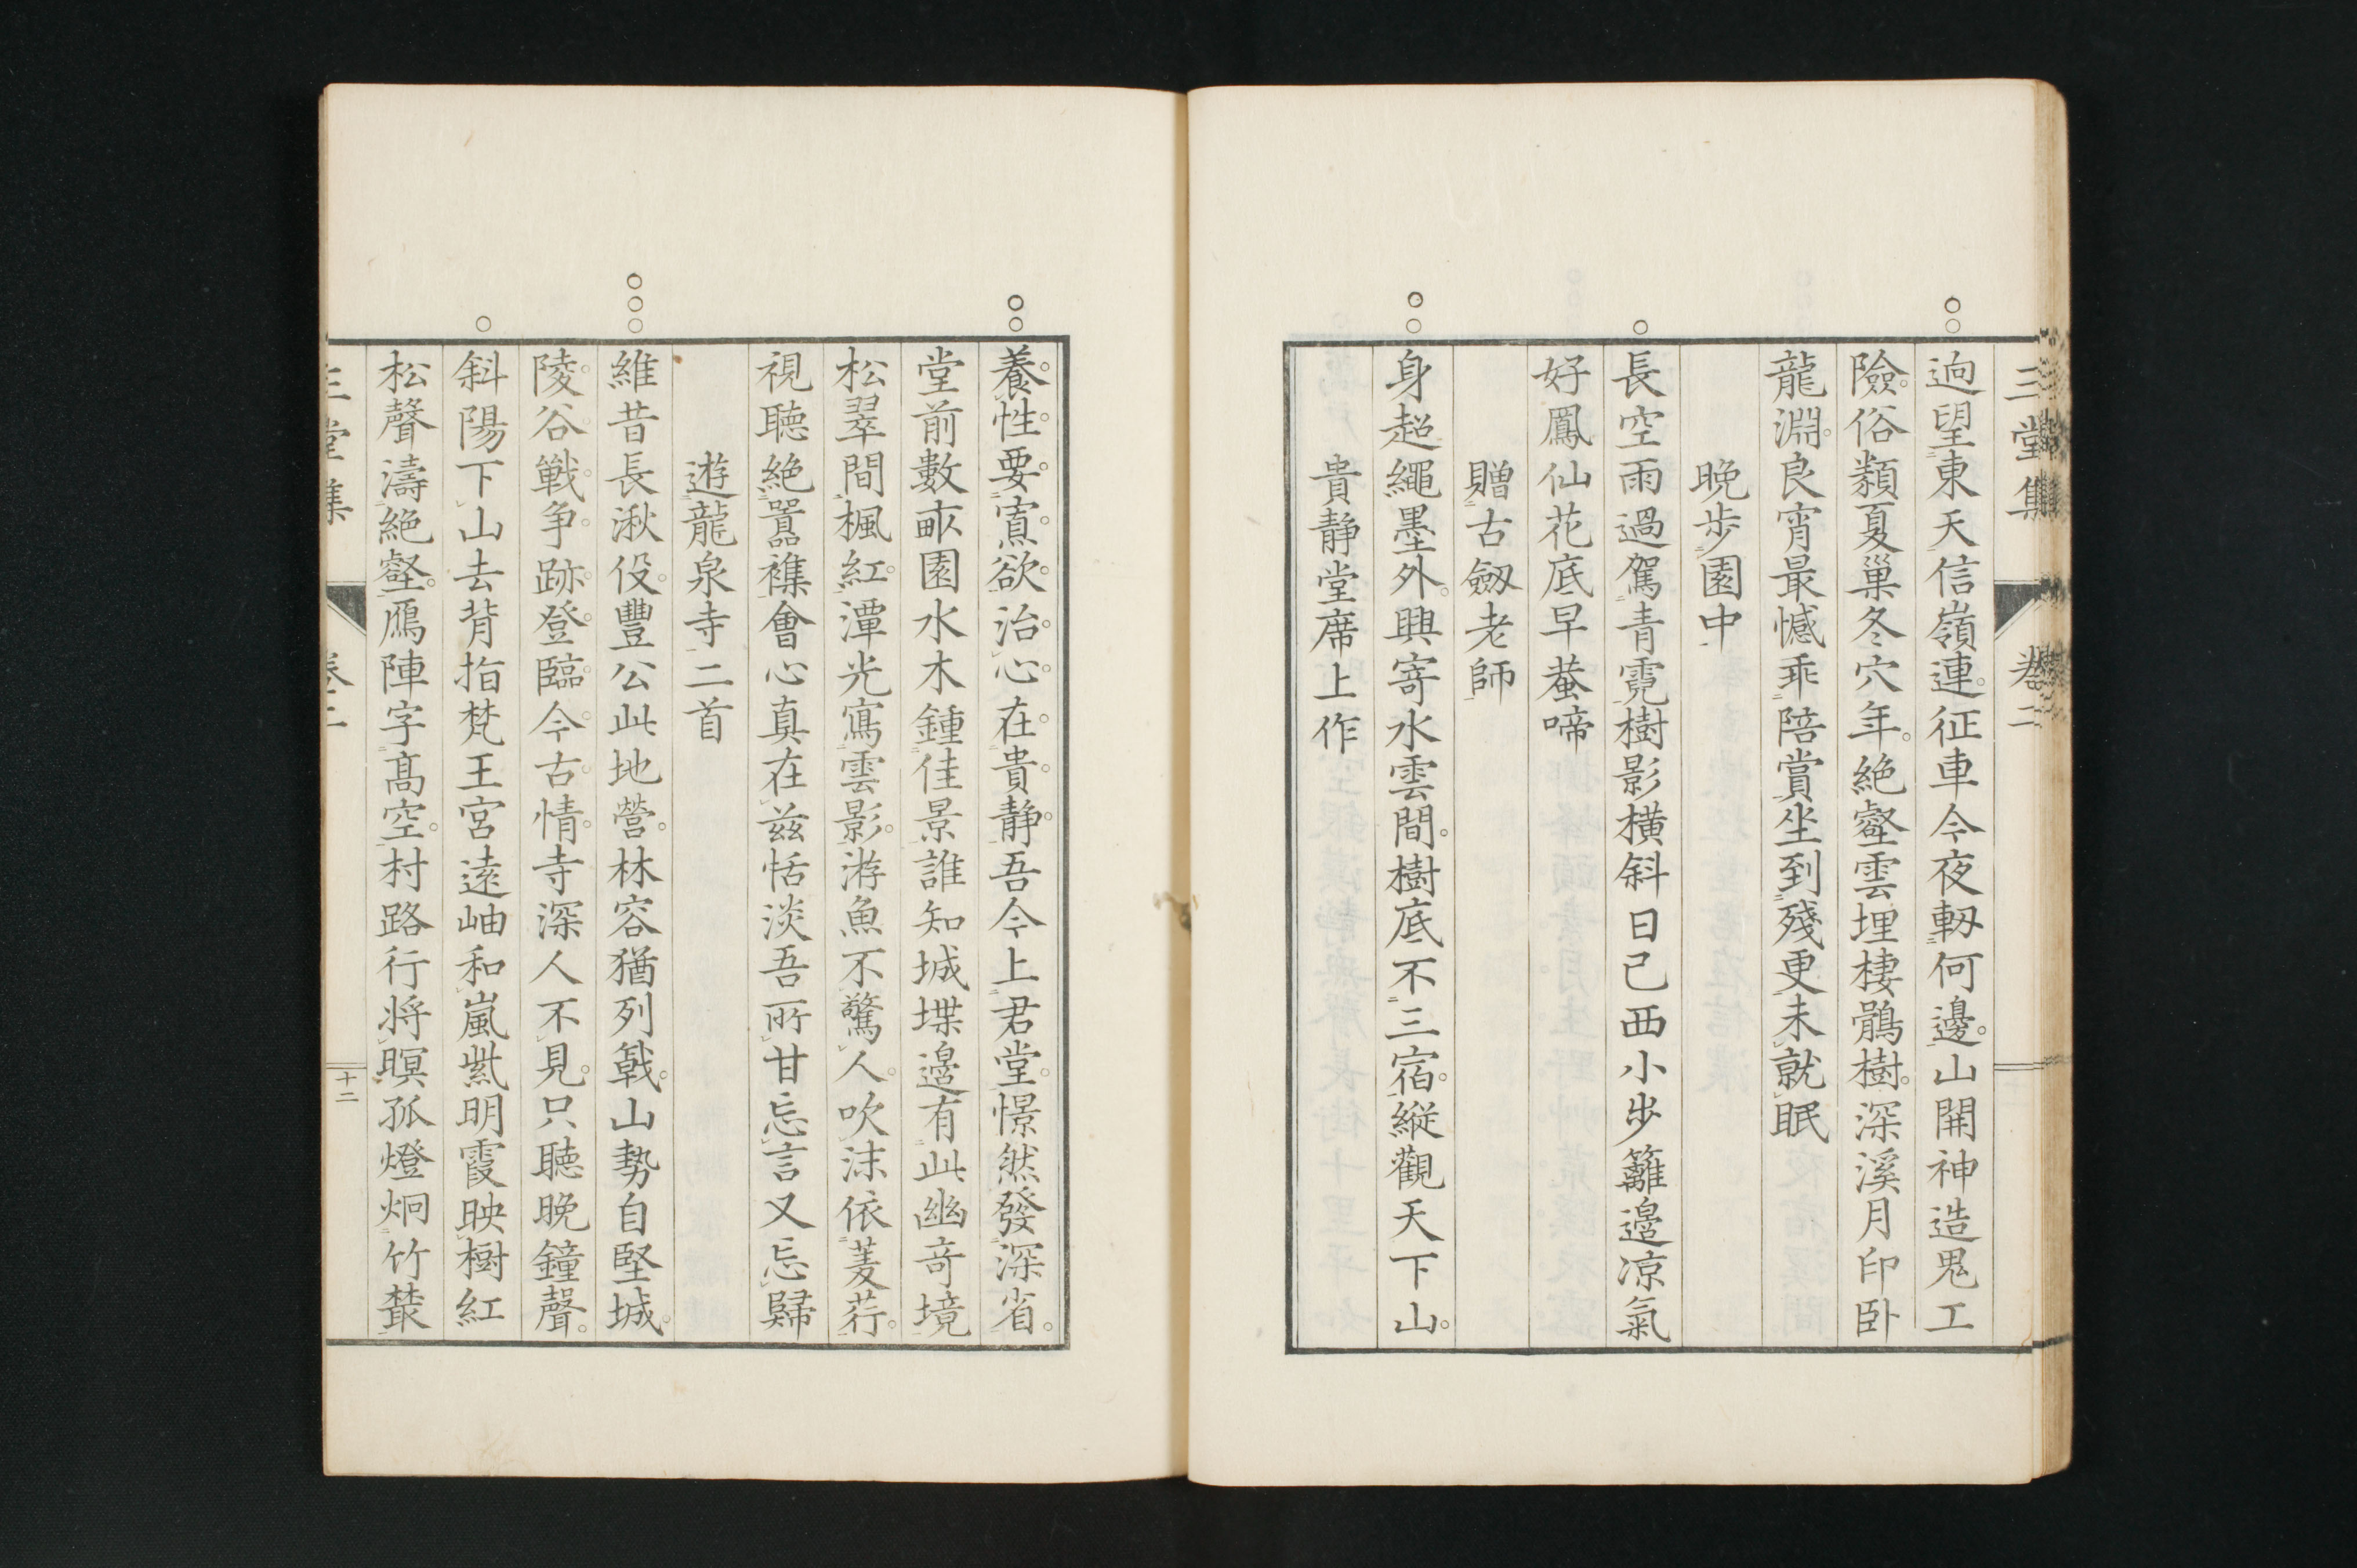 三堂集 卷二
逈望東天信嶺連征車今夜軔何邊山開神造鬼工
險俗類夏巢冬穴年絶壑雲埋棲鶻樹深溪月印卧
龍淵良宵最憾乖陪賞坐到殘更未就眠
晚步園中
長空雨過駕青霓樹影橫斜日已西小步籬邊凉氣
好鳳仙花底早蛬啼
贈古劔老師
身超繩墨外興寄水雲間樹底不三宿縱觀天下山
貴静堂席上作
養性要寡欲治心在貴静吾今上君堂憬然發深省
堂前數畝園水木鍾佳景誰知城堞邊有此幽竒境
松翠間楓紅潭光寫雲影游魚不驚人吹沫依菱荇
視聽絶囂襍會心真在兹恬淡吾所甘忘言又忘歸
遊龍泉寺二首
維昔長湫役豐公此地營林容猶列戟山勢自堅城
陵谷戰争跡登臨今古情寺深人不見只聽晚鐘聲
斜陽下山去背指梵王宮遠岫和嵐紫明霞映樹紅
松聲濤絶壑鴈陣字髙空村路行將暝孤燈炯竹叢
三堂集 卷二 十二